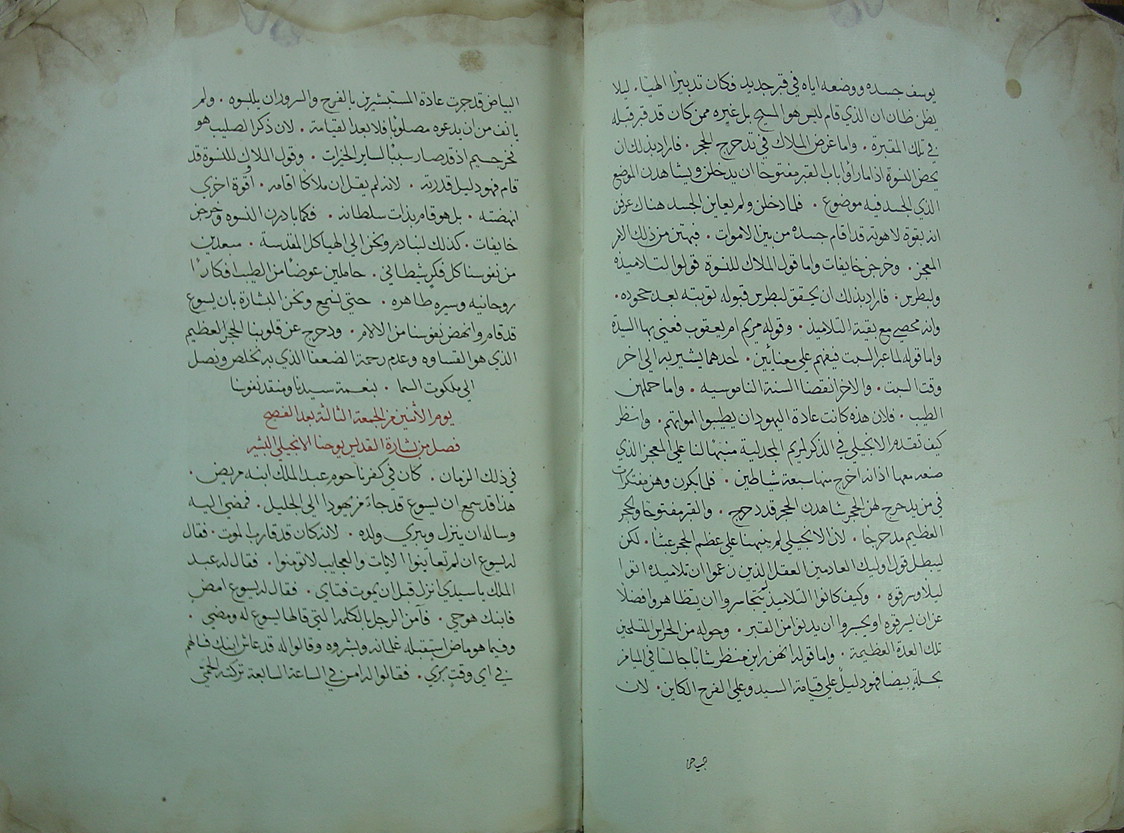 يوسف جسده ووضعه اياه في قبر جديد فكان تدبيرًا الهيًا. ليلا
يظن ظان ان الذي قام ليس هو المسيح بل غيره ممن كان قد قبر قبله
في تلك المقبرة. واما غرض الملاك في تدحرج الحجر. فاراد بذلك ان
يحض النسوة اذا ما راوا باب القبر مفتوحًا ان يدخلن ويشاهدن الموضع
الذي الجسد فيه موضوع. فلما دخلن ولم يعاين الجسد هناك عرفن
انه بقوة لاهوته قد اقام جسده من بين الاموات. فبهتين من ذلك الامر
المعجز. وخرجن خايفات واما قول الملاك للنسوة قولوا لتلاميذه
ولبطرس. فاراد بذلك ان يحقق لبطرس قبوله توبته بعد جحوده.
وانه محصي مع بقية التلاميذ. وقوله مريم ام يعقوب فعني بها السيدة
واما قوله لما عبر السبت فيفهم علي معنايين. احدهما يشير به الي اخر
وقت السبت. والاخر انقضا السنة الناموسيه. واما حملهن
الطيب. فلان هذه كانت عادة اليهود ان يطيبوا امواتهم. وانظر
كيف تقدم الانجيلي في الذكر لمريم المجدلية منبهًا لنا علي المعجز الذي
صنعه معها اذ انه اخرج منها سبعة شياطين. فلما بكرن وهن مفتكرات
في من يدحرج لهن الحجر شاهدن الحجر قد دحرج. والقبر مفتوحًا والحجر
العظيم مدحرجا. لان الانجيلي لم ينبهنا علي عظم الحجر عبثًا. لكن
ليبطل قول اوليك العادمين العقل الذين زعموا ان تلاميذه اتوا
ليلا وسرقوه. وكيف كانوا التلاميذ يتجاسروا ان يتظاهروا فضلا
عن ان يسرقوه او يجسروا ان يدنوا من القبر. وحوله من الحرس المتسلحين
تلك العدة العظيمة. واما قوله انهن راين منظر شابًا جالسًا في الميامن
بحلةٍ بيضا فهو دليلٌ علي قيامة السيد وعلي الفرح الكاين. لان
البياض قد جرت عادة المستبشرين بالفرح والسرور ان يلبسوه. ولم
يانف من ان يدعوه مصلوبًا فلا بعد القيامة. لان ذكر الصليب هو
فخر جسيم اذ قد صار سببًا لساير الخيرات. وقول الملاك للنسوة قد
قام فهو دليل قدرته. لانه لم يقل ان ملاكا اقامه. او قوة اخري
انهضته. بل هو قام بذات سلطانه. فكما بادرن النسوة وخرجن
خايفات. كذلك لنبادر ونحن الي الهياكل المقدسة. مبعدين
من نفوسنا كل فكرٍ شيطاني. حاملين عوضًا من الطيب افكارًا
روحانيه وسيره طاهره. حتي نسمع ونحن البشارة بان يسوع
قد قام وانهض نفوسنا من الالام. ودحرج عن قلوبنا الحجر العظيم
الذي هو القساوه وعدم رحمة الضعفا الذي به نخلص ونصل
الي ملكوت السما. بنعمة سيدنا ومنقذ نفوسنا
يوم الاثنين من الجمعة الثالثة بعد الفصح
فصل من بشارة القديس يوحنا الانجيلي البشير
في ذلك الزمان. كان في كفرناحوم عبد الملك ابنه مريض.
هذا قد سمع ان يسوع قد جاءَ من يهودا الي الجليل. فمضي اليه
وساله ان ينزل ويبري ولده. لانه كان قد قارب الموت. فقال
له يسوع ان لم تعاينوا الايات والعجايب لا تومنوا. فقال له عبد
الملك يا سيدي انزل قبل ان يموت فتاي. فقال له يسوع امض
فابنك هو حيّ. فآمن الرجل بالكلمة التي قالها يسوع له ومضي.
وفيما هو ماض استقبله غلمانه وبشروه وقالوا له قد عاش ابنك فسالهم
في اي وقتٍ بري. فقالوا له امس في الساعة السابعة تركته الحمّي